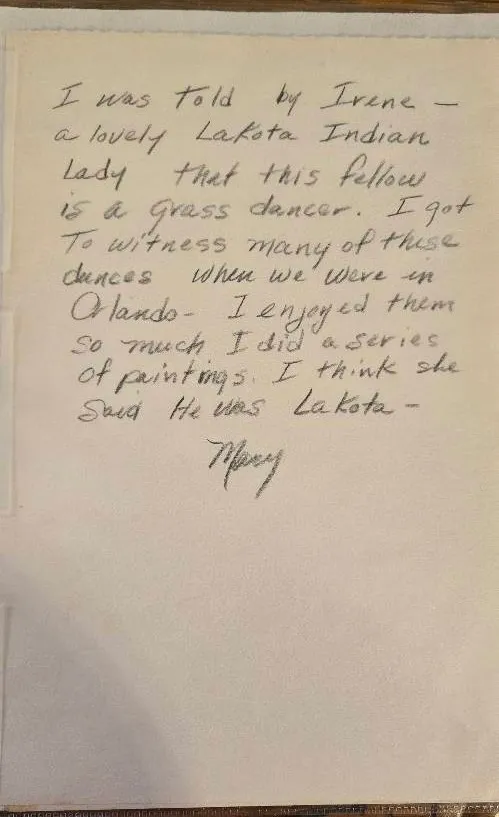 I was told by Irene -
a lovely Lakota Indian
Lady that this fellow
is a grass dancer. I got
To witness many of these
dances when we were in
Orlando - I enjoyed them
so much I did a series
of paintings. I think she
said He was Lakota -
Mary